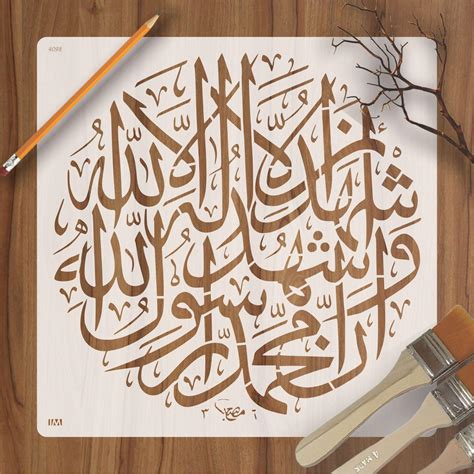 4098
أشهد أن لا إله إلا الله
وأشهد أن محمدا رسول الله
IM